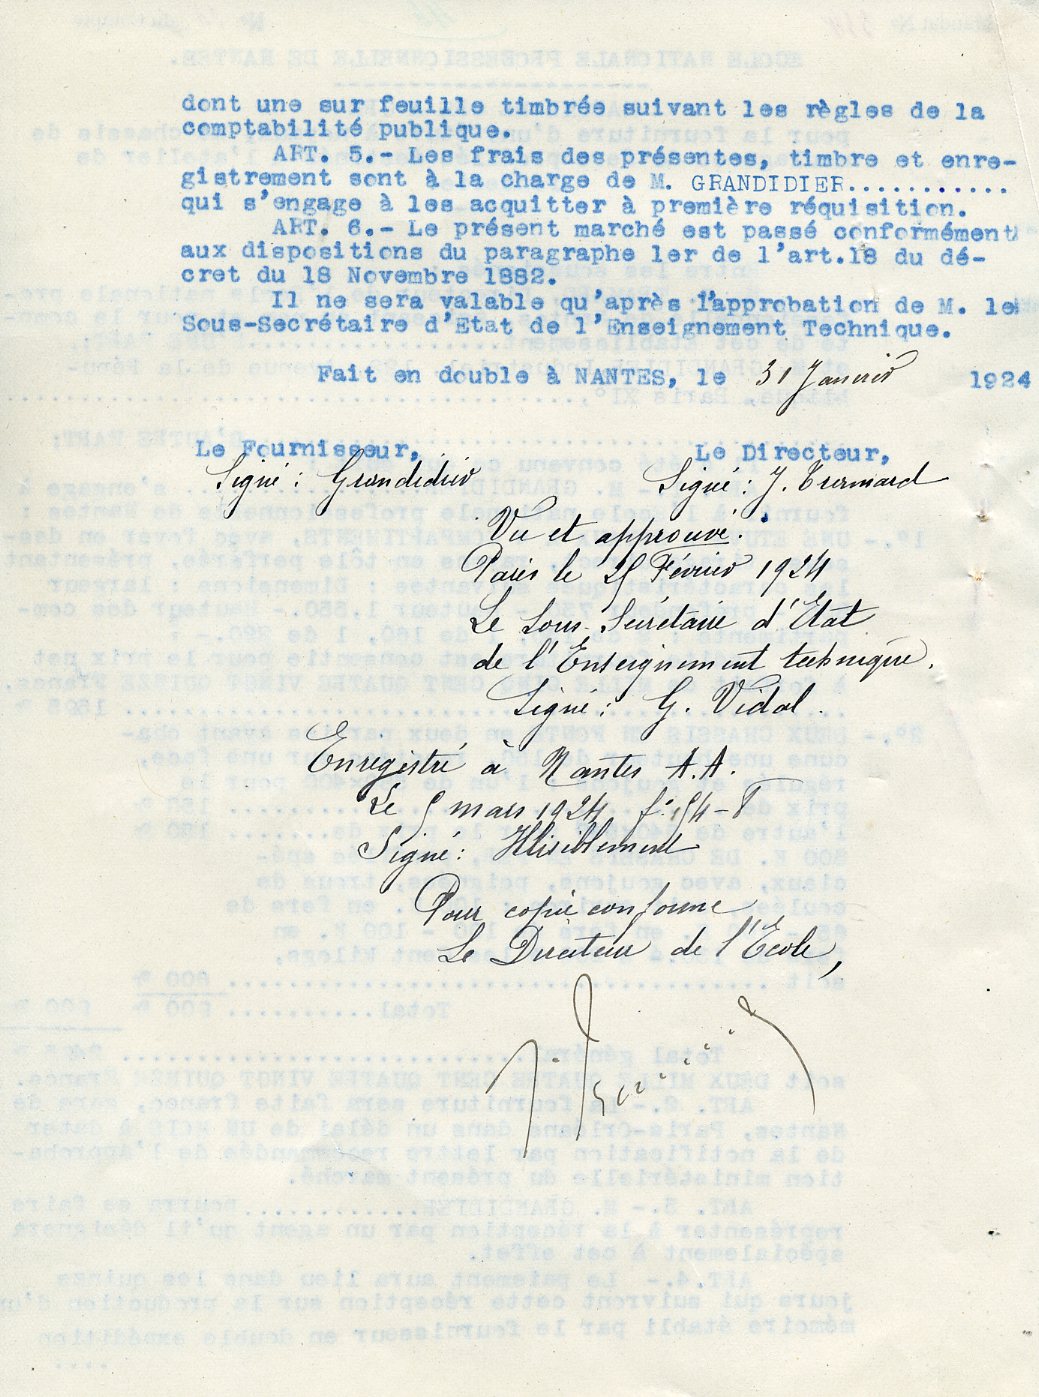 dont une sur feuille timbrée suivant les règles de la
comptabilité publique.
ART. 5.- Les frais des présentes, timbre et enre-
gistrement sont à la charge de M. GRANDIDIER...........
qui s'engage à les acquitter à première réquisition.
ART. 6.- Le présent marché est passé conformément
aux dispositions du paragraphe 1er de l'art.18 du dé-
cret du 18 Novembre 1882.
Il ne sera valable qu'après l'approbation de M. le
Sous-Secrétaire d'Etat de l'Enseignement Technique.
Fait en double à NANTES, le 31 Janvier 1924
Le Fournisseur, Le Directeur,
Signé : Grandidier Signé : J.
Vu et approuvé.
Paris le 25 Février 1924
Le Sous-Secrétaire d'Etat
de l'Enseignement technique.
Signé : G. Vidal.
Enregistré à Nantes A.A.
Le 5 mars 1924 fº
Signé : Illisiblement
Pour copie conforme
Le Directeur de l'Ecole,